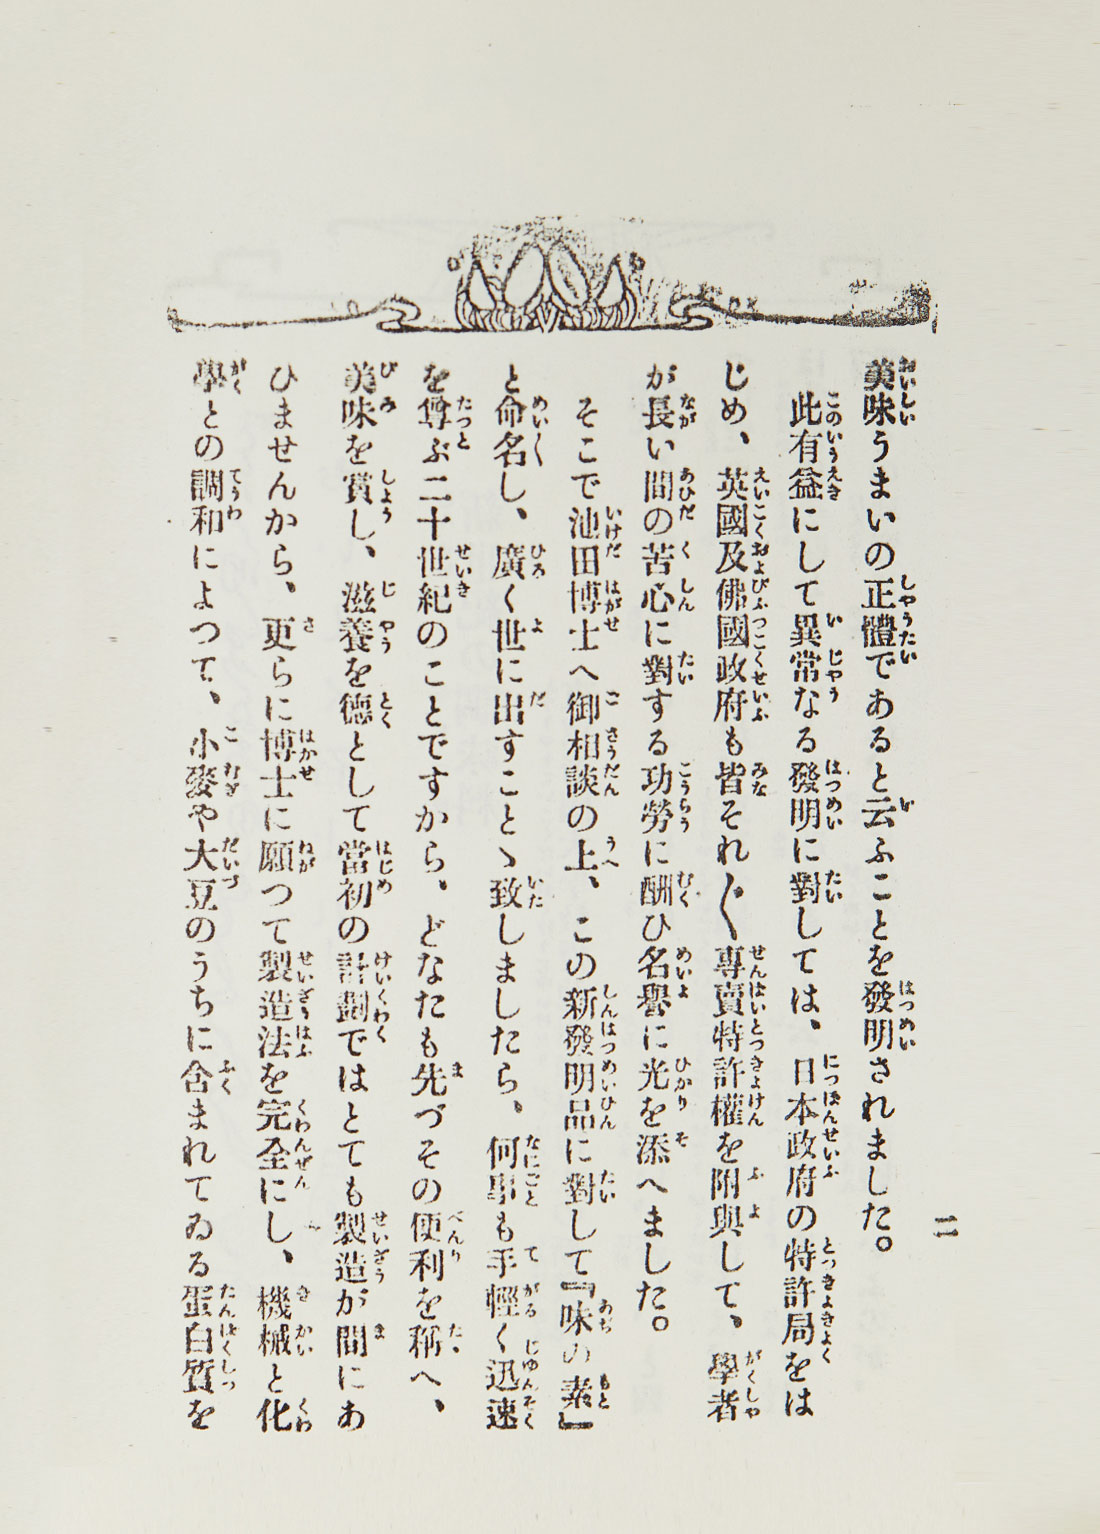 美味うまいの正體であると云ふことを發明されました。
此有益にして異常なる發明に對しては、日本政府の特許局をは
じめ、英國及佛國政府も皆それ〴〵專賣特許權を附與して、學者
が長い間の苦心に對する功勞に酬ひ名譽に光を添へました。
そこで池田博士へ御相談の上、この新發明品に對して『味の素』
と命名し、廣く世に出すことゝ致しましたら、何事も手輕く迅速
を尊ぶ二十世紀のことですから、どなたも先づその便利を稱へ、
美味を賞し、滋養を德として當初の計劃ではとても製造が間にあ
ひませんから、更らに博士に願つて製造法を完全にし、機械と化
學との調和によつて、小麥や大豆のうちに含まれてゐる蛋白質を
二